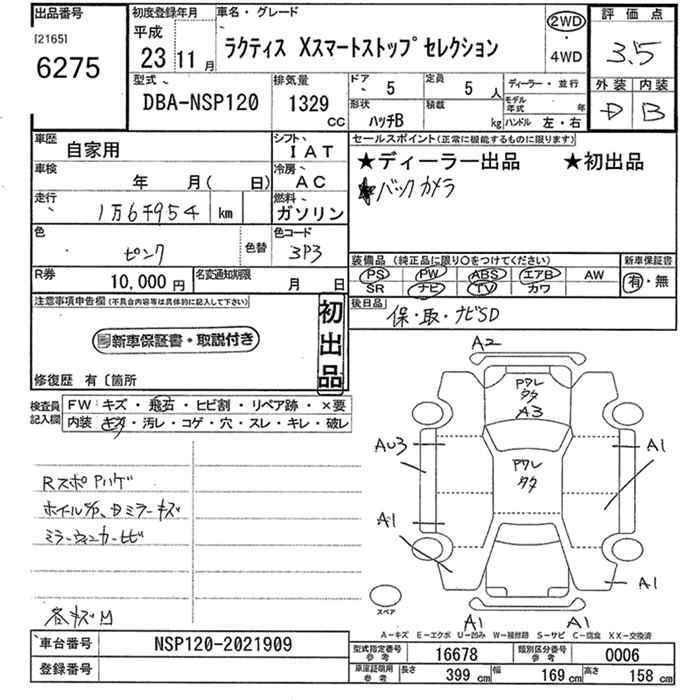 出品番号
[2165]
6275
初度登録年月
平成
23 11月
車名・グレード
ラクティス Xスマートストップ セレクション
2WD
・
4WD
評価点
3.5
外装 内装
D B
型式
DBA-NSP120
排気量
1329
CC
ドア 5
定員 5 人
形状 ハッチB
積載 kg
ディーラー・並行
モデル年式 年
ハンドル 左・右
車歴 自家用
シフト IAT
車検 年 月( 日)
冷房 AC
走行 1万6千954 km
燃料 ガソリン
色 ピンク 色替
色コード 3P3
R券 10,000円
名変通知期限 月 日
セールスポイント(正常に機能するものに限ります)
★ディーラー出品 ★初出品
★バックカメラ
装備品 (純正品に限り○をつけてください)
PS PW ABS エアB AW
SR ナビ TV カワ
新車保証書
有・無
後日品
保・取・ナビSD
注意事項申告欄(不具合内容等は具体的に記入して下さい)
新車保証書・取説付き
初出品
修復歴 有〔箇所
検査員記入欄
FW:キズ・飛石・ヒビ割・リペア跡・×要
内装:キズ・汚レ・コゲ・穴・スレ・キレ・破レ
RスポPハゲ
ミラーウィンカーヒビ
A2
Pワレ
A3
AU3
A1
Pワレ
A1
A1
A1
A1
スペア
A-キズ E-エクボ U-凹み W-補修跡 S-サビ C-腐食 XX-交換済
車台番号 NSP120-2021909
登録番号
型式指定番号 参考 16678
類別区分番号 参考 0006
車庫証明用 参考 長さ 399 cm 幅 169 cm 高さ 158 cm